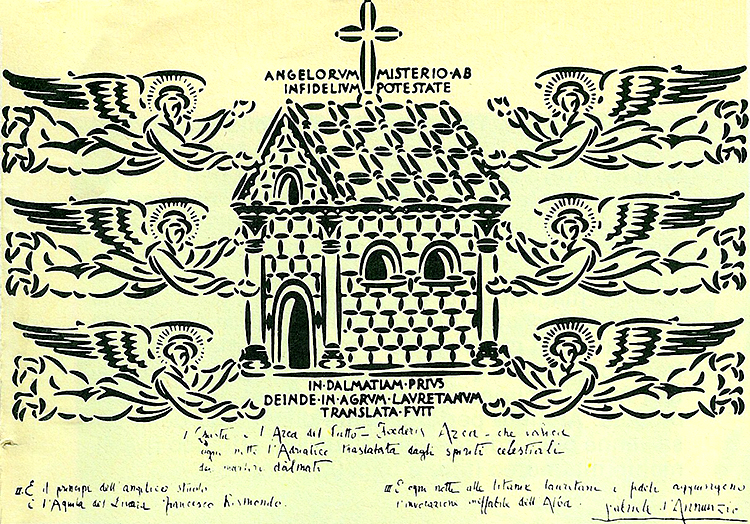 ANGELORVM MISTERIO·AB
INFIDELIVM POTESTATE
IN·DALMATIAM·PRIVS
DEINDE·IN·AGRVM·LAVRETANVM
TRANSLATA·FVIT
I Questa è l'Arca del Patto – Foederis Arca – che valica
ogni notte l'Adriatico traslatata dagli spiriti celestiali
dei martiri dalmati
II. E il principe dell'angelico stuolo
è l'Aquila del Dinara Francesco Rismondo.
III E ogni notte alle litanie lauretane i fedeli aggiungono
l'invocazione ineffabile dell'Alba.
Gabriele d'Annunzio